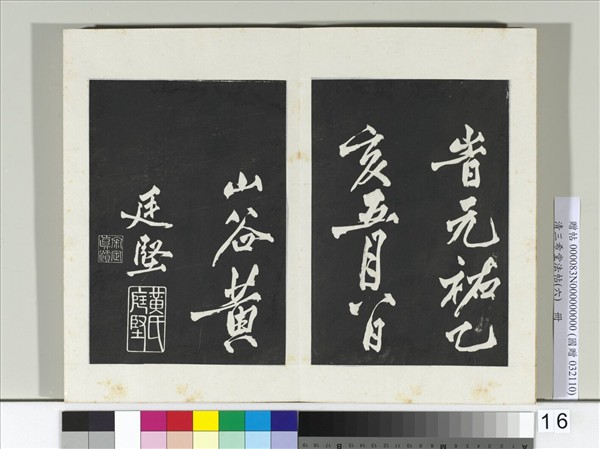 旹元祐乙
亥五月八日
山谷黃
廷堅
黃氏庭堅
贈帖 000083N000000000 (國贈 032110)
清三希堂法帖(六) 冊
16